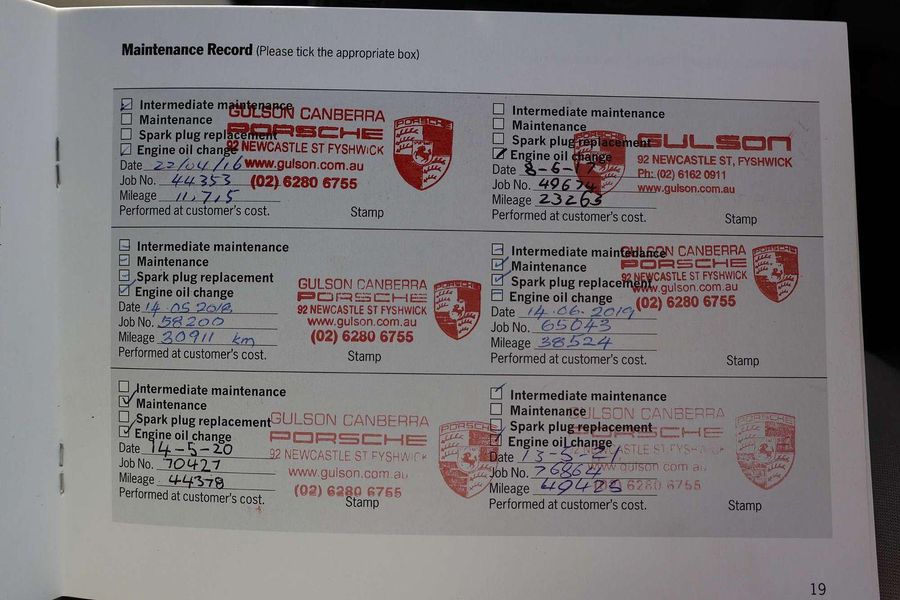 Maintenance Record (Please tick the appropriate box)
Intermediate maintenance
Maintenance
Spark plug replacement
Engine oil change
Date 22/04/16
Job No. 44353
Mileage 11,715
Performed at customer's cost.
Stamp
GULSON CANBERRA
PORSCHE
92 NEWCASTLE ST FYSHWICK
www.gulson.com.au
(02) 6280 6755
PORSCHE
Intermediate maintenance
Maintenance
Spark plug replacement
Engine oil change
Date 8-6-17
Job No. 49674
Mileage 23265
Performed at customer's cost.
Stamp
GULSON
92 NEWCASTLE ST, FYSHWICK
Ph: (02) 6162 0911
www.gulson.com.au
Intermediate maintenance
Maintenance
Spark plug replacement
Engine oil change
Date 14.05.2018
Job No. 58200
Mileage 30911 km
Performed at customer's cost.
Stamp
GULSON CANBERRA
PORSCHE
92 NEWCASTLE ST FYSHWICK
www.gulson.com.au
(02) 6280 6755
PORSCHE
Intermediate maintenance
Maintenance
Spark plug replacement
Engine oil change
Date 14.06.2019
Job No. 65043
Mileage 38524
Performed at customer's cost.
Stamp
GULSON CANBERRA
PORSCHE
92 NEWCASTLE ST FYSHWICK
www.gulson.com.au
(02) 6280 6755
PORSCHE
Intermediate maintenance
Maintenance
Spark plug replacement
Engine oil change
Date 14-5-20
Job No. 70427
Mileage 44378
Performed at customer's cost.
Stamp
GULSON CANBERRA
PORSCHE
92 NEWCASTLE ST FYSHWICK
www.gulson.com.au
(02) 6280 6755
PORSCHE
Intermediate maintenance
Maintenance
Spark plug replacement
Engine oil change
Date 13-5-21
Job No. 76864
Mileage 49425
Performed at customer's cost.
Stamp
GULSON CANBERRA
PORSCHE
NEWCASTLE ST FYSHWICK
www.gulson.com.au
6280 6755
PORSCHE
19